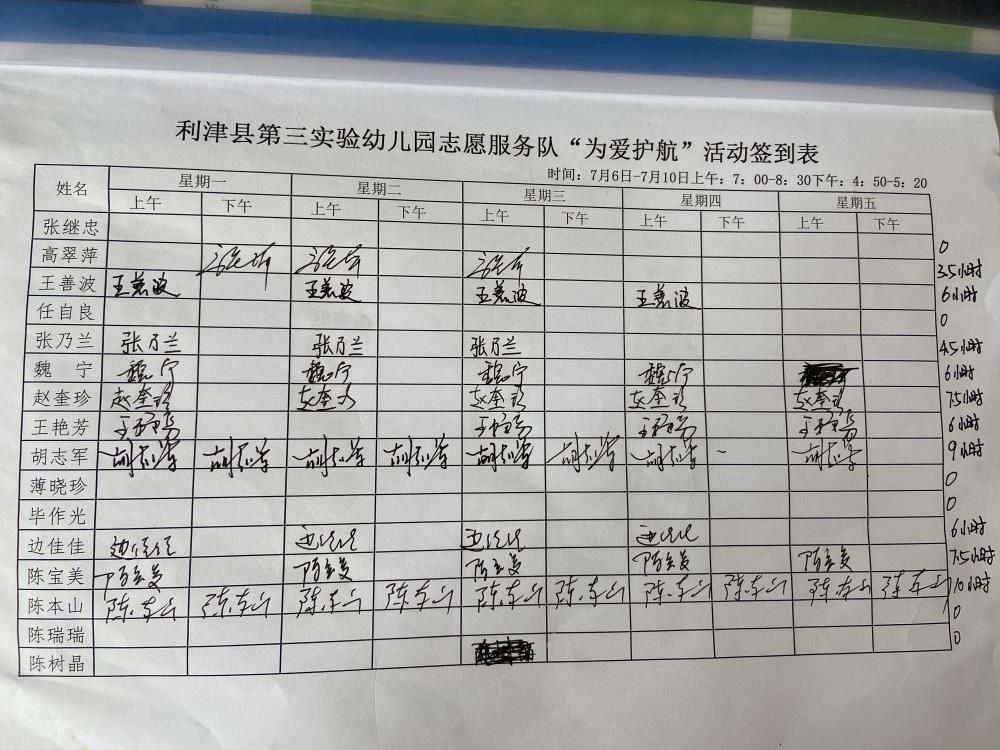 利津县第三实验幼儿园志愿服务队“为爱护航”活动签到表
时间：7月6日-7月10日上午：7：00-8：30下午：4：50-5：20
姓名 星期一 星期二 星期三 星期四 星期五
上午 下午 上午 下午 上午 下午 上午 下午 上午 下午
张继忠 0
高翠萍 3.5小时
王善波 王善波 王善波 王善波 王善波 6小时
任自良 0
张乃兰 张乃兰 张乃兰 张乃兰 4.5小时
魏宁 魏宁 魏宁 魏宁 魏宁 6小时
赵奎珍 赵奎珍 赵奎珍 赵奎珍 赵奎珍 赵奎珍 7.5小时
王艳芳 6小时
胡志军 胡志军 胡志军 胡志军 胡志军 胡志军 胡志军 胡志军 - 胡志军 9小时
薄晓珍 0
毕作光 0
边佳佳 边佳佳 边佳佳 边佳佳 边佳佳 6小时
陈宝美 陈宝美 陈宝美 陈宝美 陈宝美 陈宝美 7.5小时
陈本山 陈本山 陈本山 陈本山 陈本山 陈本山 陈本山 陈本山 陈本山 陈本山 陈本山 10小时
陈瑞瑞 0
陈树晶 0